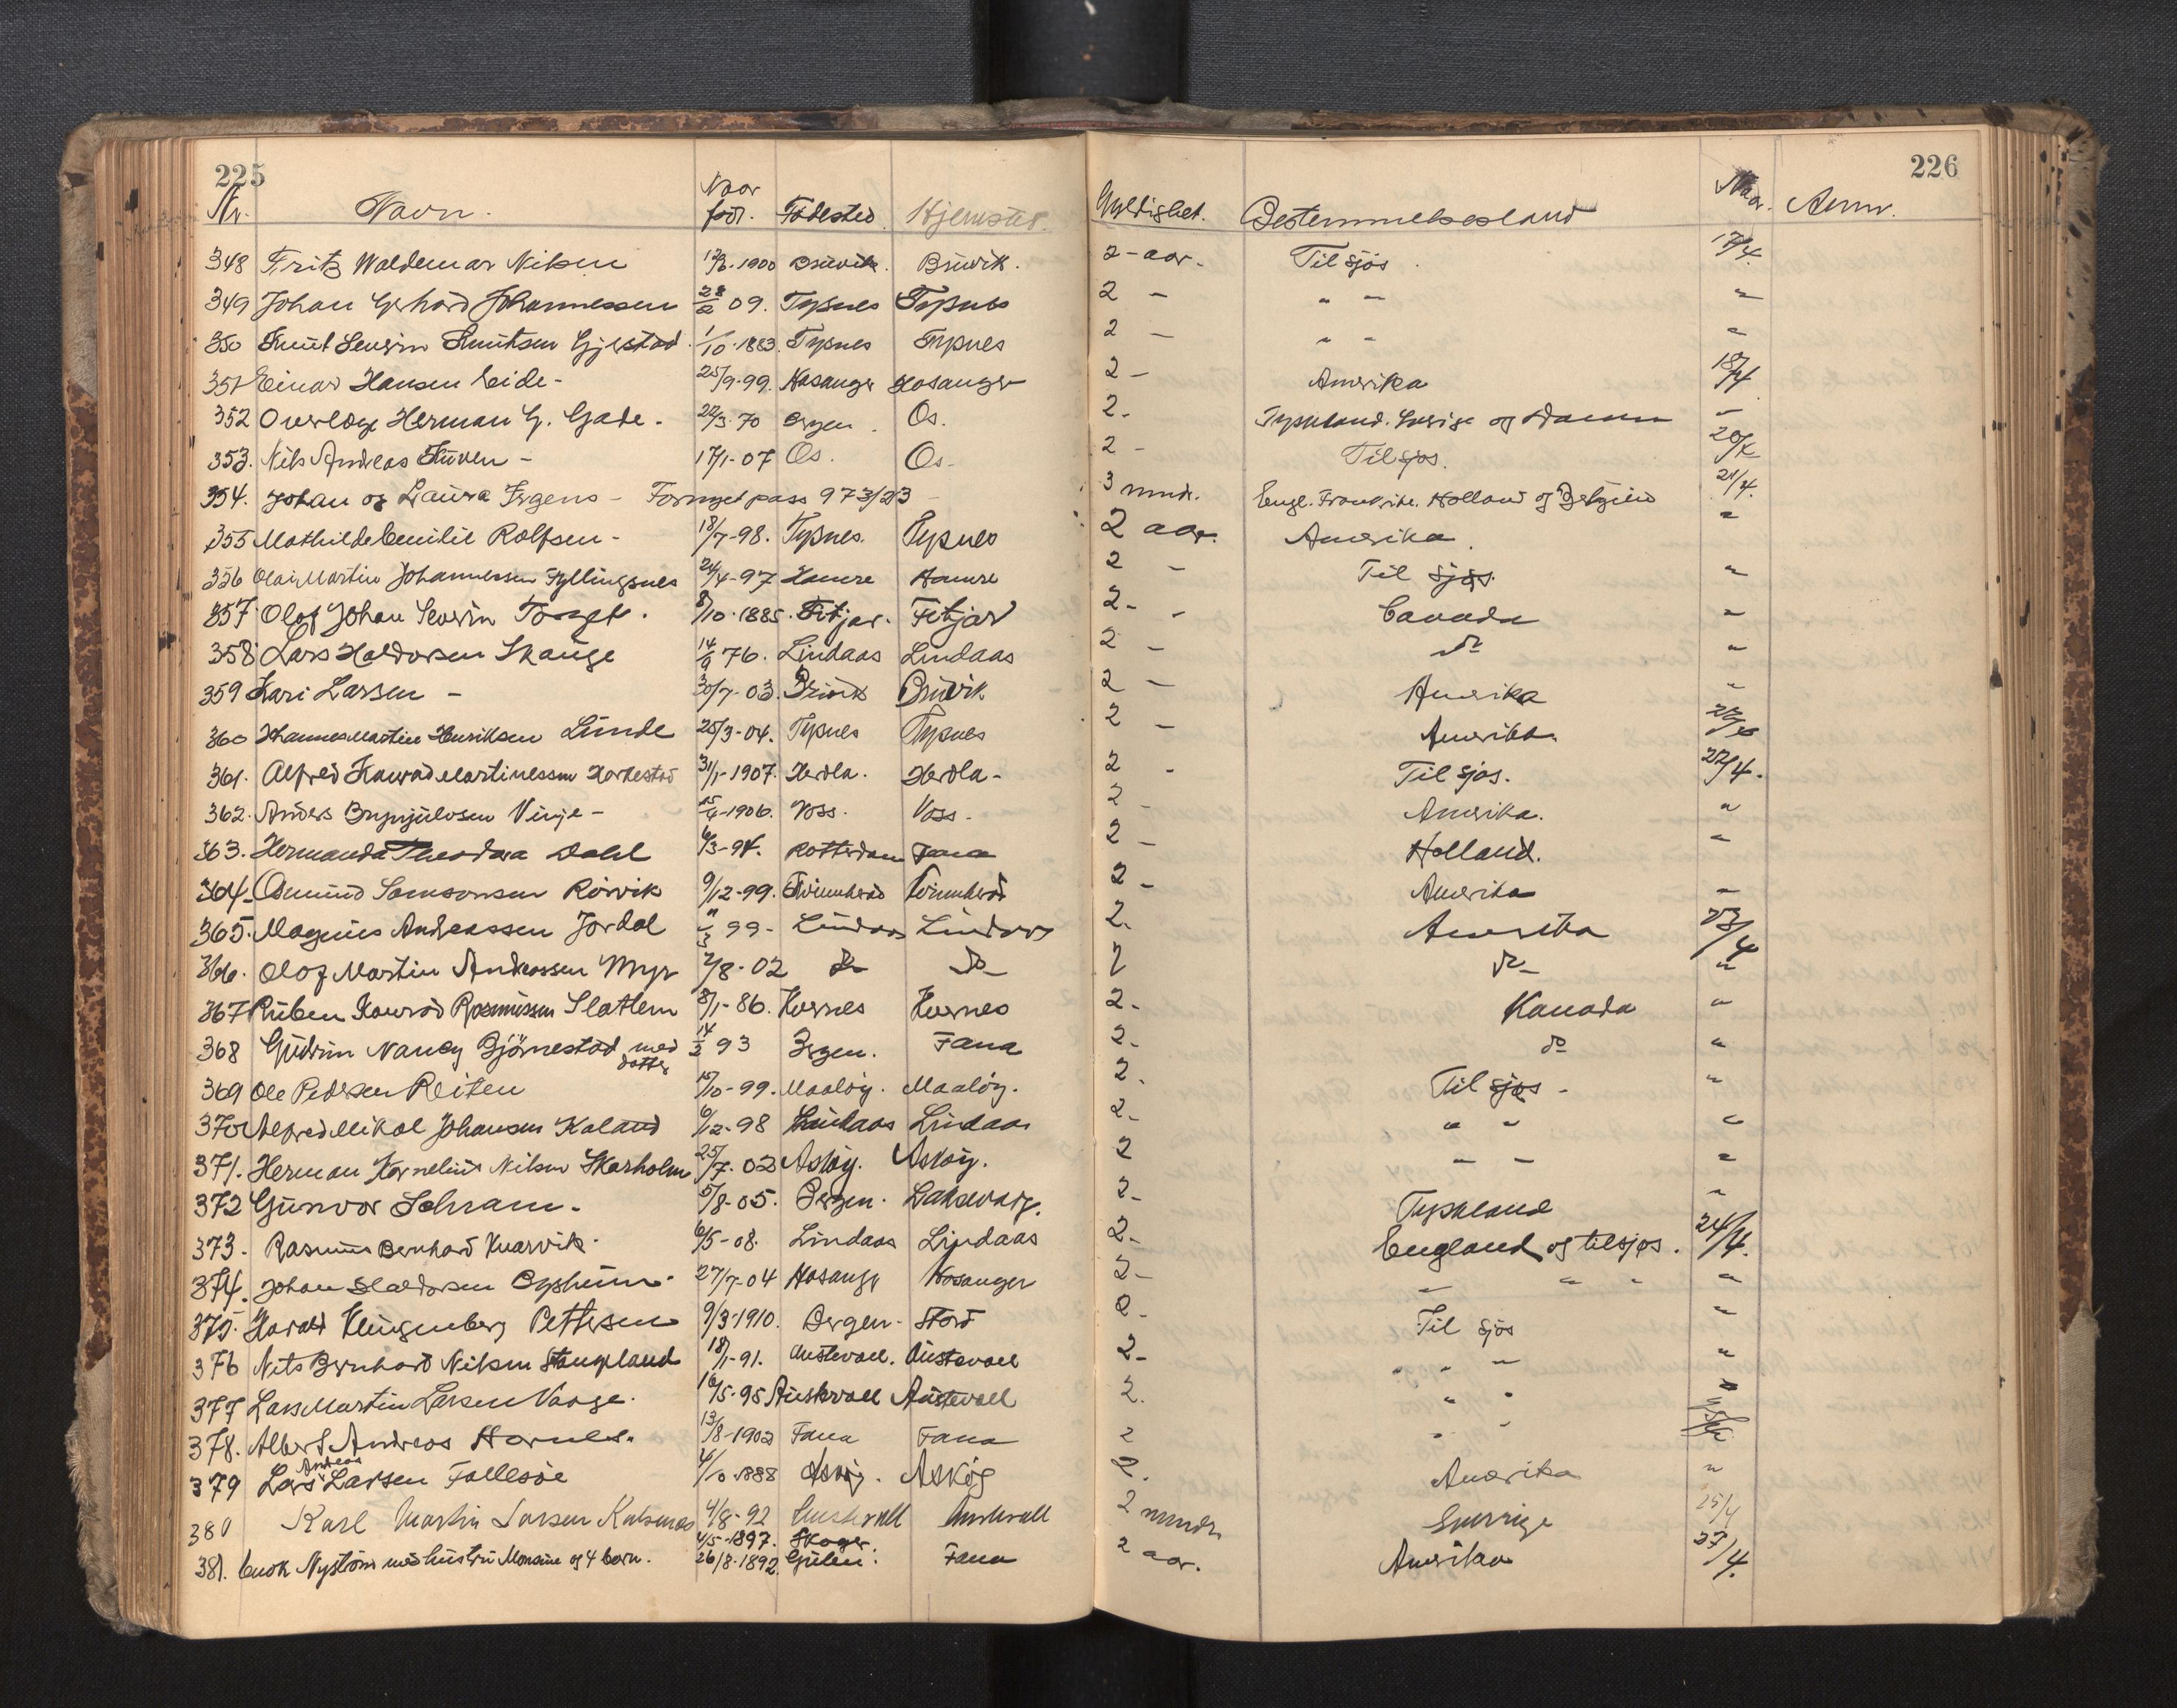 225
226
Nr. Navn. Naar född. Födested Hjemsted. Gyldighet. Bestemmelsesland Naar. Anm.
348 Fritz Waldemar Nilsen 1900 Bruvik. Bruvik. 2 - aar. Til sjøs 17/4.
349 Johan Gerhard Johannessen 28/2 09. Tysnes Tysnes 2 - " " "
350 Knut Severin Knutsen Gjerstad. 1/10.1883. Tysnes Tysnes 2 - " " "
351 Einar Hansen Eide - 25/9-99. Hosanger Hosanger 2 - Amerika 18/4
352 Overlæge Herman G. Gade. 22/3.70 Bergen. Os. 2. Tyskland. Sverige og Danm "
353. Nils Andreas Tuven - 17/1-07 Os. Os. 2 - Til sjøs. 20/4
354. Johan og Laura Irgens - Fornyet pass 973/23 - 3 mndr. Engl. Frankrike. Holland og Belgien 21/4.
355 Mathilde Emilie Rolfsen - 18/7-98. Tysnes. Tysnes 2 aar. Amerika. "
356 Olai Martin Johannessen Fyllingsnes 24/4-97 Hamre Hamre 2 - Til sjøs. "
357. Olof Johan Severin 8/10.1885. Fitjar. Fitjar 2 - - Canada "
358 Lars Haldorsen Skauge 14/9 76. Lindaas Lindaas 2 - do "
359 Kari Larsen - 30/7-03. Bruvik Bruvik 2 - Amerika "
360 Johannes Martin Henriksen Lunde 25/3-04. Tysnes Tysnes 2 - Amerika.
361. Alfred Konrad Martinessen 31/1-1907. Herdla. Herdla - 2 - Til sjøs. 22/4.
362. Anders Brynjulvsen Vinje - 15/4-1906. Voss. Voss. 2 - Amerika. "
363. Hermanda Theodora Dahl 6/3-94. Rotterdam Fana 2 - Holland. "
364. Asmund Samsonsen Rörvik 9/12-99. Kvinnherad Kvinnherad 2 - Amerika "
365. Magnus Andreassen Jordal 11/3 99 - Lindaas Lindaas 2. Amerika 23/4
366. Olof Martin Andreassen Myr 2/8.02 do do 2 do "
367 Ruben Konrad Rasmussen Slatlem 8/1-86. Hernes Hernes 2 - Kanada "
368 Gudrun Nancy Björnestad med datter 14/2 93 Bergen. Fana 2 - do "
369 Ole Pedersen Reiten 15/10-99. Maalöy. Maalöy. 2. Til sjøs - "
370 Alfred Mikal Johansen Kaland 6/12-98 Lindaas Lindaas 2 - " " "
371. Herman Kornelius Nilsen Skarholm 25/7.02 Asköy. Asköy. 2 " " "
372 Gunvor Schram. 5/8-05. Bergen. Laksevaag. 2 - Tyskland "
373. Rasmus Bernhard Kvarvik. 6/5-08. Lindaas Lindaas 2 - England og tilsjøs. 24/4.
374. Johan Haldorsen 27/7-04 Hosanger Hosanger 2 - " " " "
375. Harald Klingenberg Pettersen 9/3-1910. Bergen. Stord 2 - Til sjøs "
376 Nils Bernhard Nilsen Stangeland 18/1-91. Austevoll. Austevoll 2 - " " "
377 Lars Martin Larsen Vaage. 16/5.95 Austevoll Austevoll 2. " " "
378. Albert Andreas Hornes. 13/8-1902 Fana Fana 2 " "
379 Lars Andreas Larsen Follesöe 4/10.1888 Asköy. Asköy 2. Amerika "
380 Karl Martin Larsen Kalsnes 4/8-92 Austevoll Austevoll 2 mndr. Sverrige 25/4
4/5-1897. Skoger.
381. Enok Nyström med hustru Monsine og 4 barn. 26/8-1892. Gulen. Fana 2 aar. Amerika 27/4.